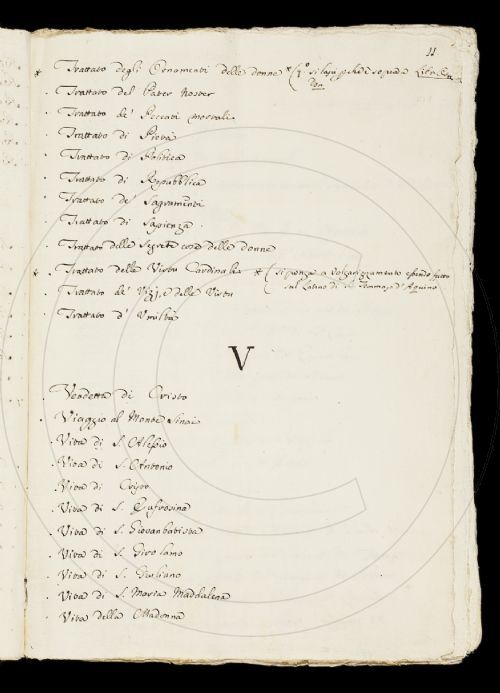 11
* Trattato degli Ornamenti delle donne * (1° si lasci pchè è sopra a
Trattato del Pater Noster
Trattato de' Peccati mortali
Trattato di Pietà
Trattato di Politica
Trattato di Repubblica
Trattato de Sagramenti
Trattato di Sapienza
Trattato delle Segrete cose delle donne
* Trattato delle Virtu Cardinali * (si ponga a Volgarizzamento essendo fatto
sul Latino di S. Tommaso d'Aquino
Trattato de' Vizj, e delle Virtu
Trattato d' Umiltà
V
Vendetta di Cristo
Viaggio al Monte Sinai
Vita di S. Alessio
Vita di S. Antonio
Vita di Cristo
Vita di S. Eufrosina
Vita di S. Giovanbatista
Vita di S. Girolamo
Vita di S. Giuliano
Vita di S. Maria Maddalena
Vita della Madonna